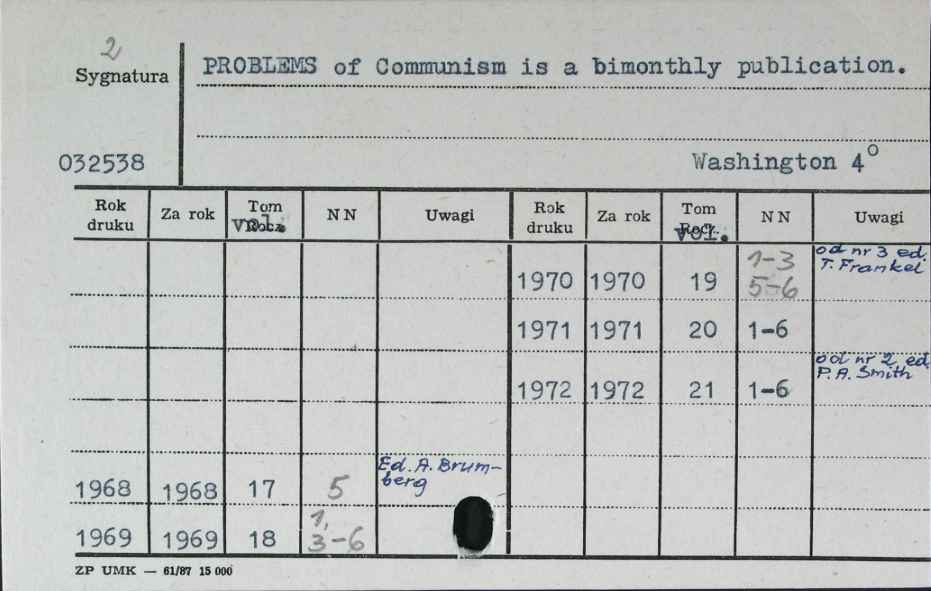 2
Sygnatura
PROBLEMS of Communism is a bimonthly publication.
032538
Washington 4°
Rok druku Za rok Tom vol. NN Uwagi Rok druku Za rok Tom Rocz. vol. NN Uwagi
1970 1970 19 1-3 5-6 od nr 3 ed. T. Frankel
1971 1971 20 1-6
1972 1972 21 1-6 od nr 2 ed. P.A. Smith
1968 1968 17 5 Ed. A. Brum-berg
1969 1969 18 1, 3-6
ZP UMK — 61/87 15 000